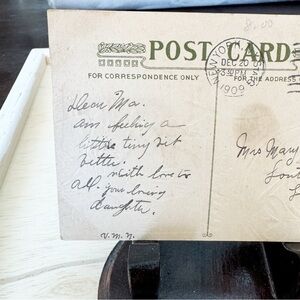 8.00
POST CARD
FOR CORRESPONDENCE ONLY
FOR THE ADDRESS
NEW YORK
DEC 20
330PM
1909
Dear Ma.
am feeling a
little tiny bit
better.
with love to
all your loving
daughter.
V. M. N.
Mrs Mary